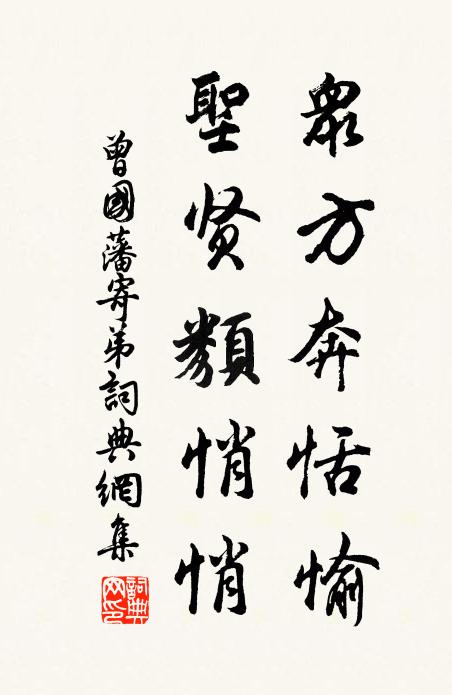 眾方奔恬愉
聖贤類悄悄
曾國藩寄弟詞典網集
詞典網印